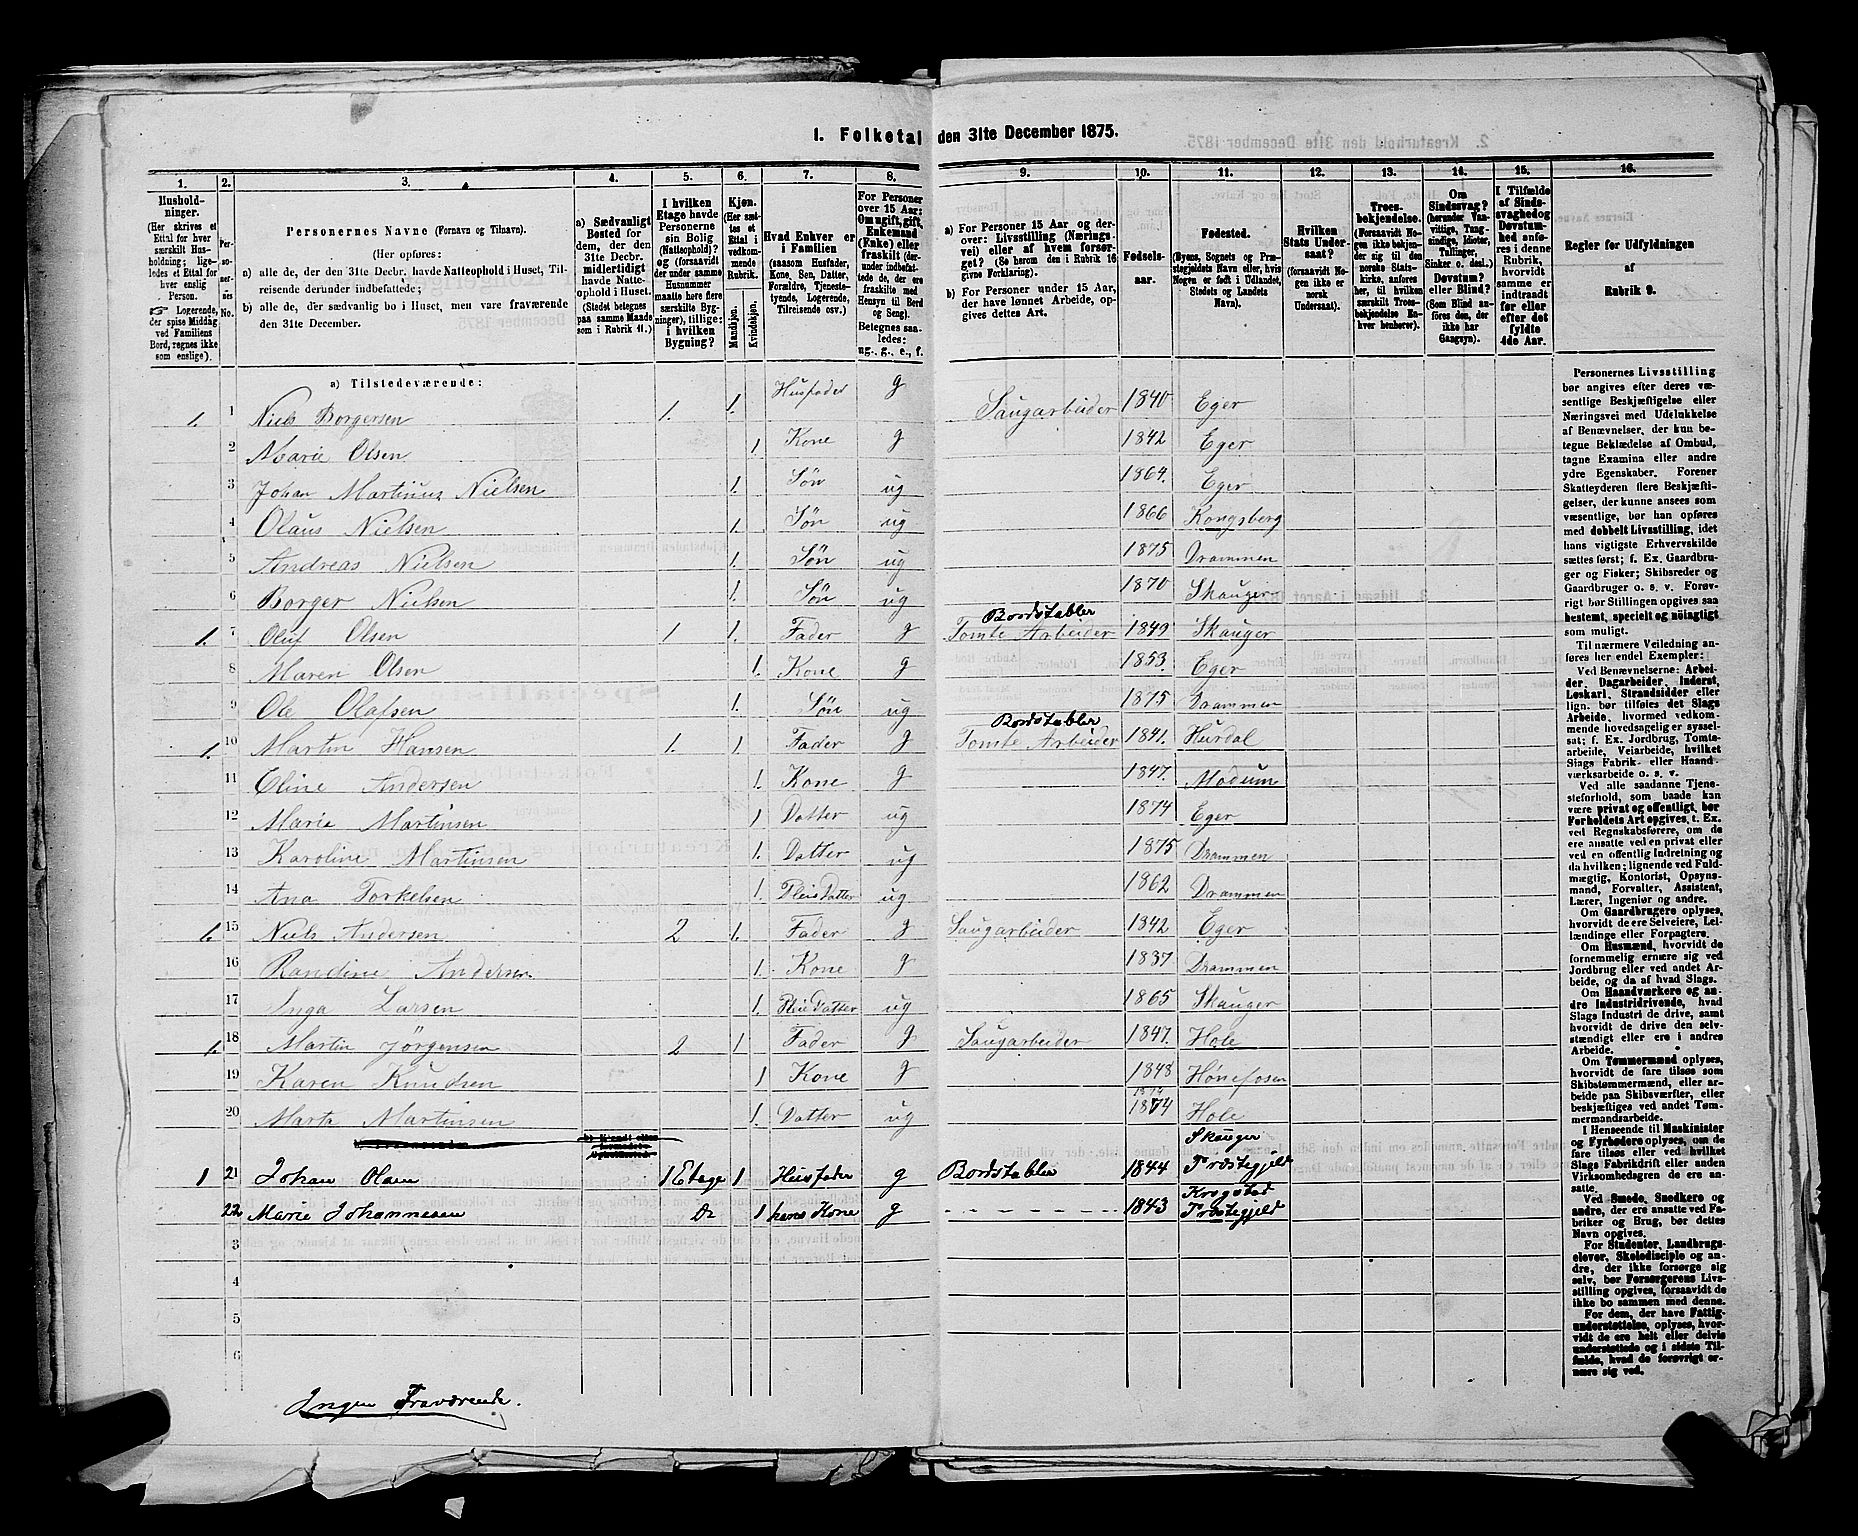 1. Folketal den 31te December 1875.
1. 2. 3. 4. 5. 6. 7. 8. 9. 10. 11. 12. 13. 14. 15. 16.
Husholdninger. (Her skrives et Ettal for hver særskilt Husholdning; ligeledes et Ettal for hver enslig Person. ☞ Logerende, der spise Middag ved Familiens Bord, regnes ikke som enslige).
Personernes No.
Personernes Navne (Fornavn og Tilnavn).
(Her opføres:
a) alle de, der den 31te Decbr. havde Natteophold i Huset, Tilreisende derunder indbefattede;
b) alle de, der sædvanlig bo i Huset, men vare fraværende den 31te December.
a) Sædvanligt Bosted for dem, der den 31te Decbr. midlertidigt havde Natteophold i Huset. (Stedet betegnes paa samme Maade som i Rubrik 11.)
I hvilken Etage havde Personerne sin Bolig (Natteophold)? og (forsaavidt der under samme Husnummer maatte høre flere særskilte Bygninger), tillige: i hvilken Bygning?
Kjøn. (Her sættes et Ettal i vedkommende Rubrik. Mandkjøn. Kvindekjøn.
Hvad Enhver er i Familien (saasom Husfader, Kone, Søn, Datter, Forældre, Tjenestetyende, Logerende, Tilreisende osv.)
For Personer over 15 Aar: Om ugift, gift, Enkemand (Enke) eller fraskilt (derunder indbefattede de, der ere fraskilte med Hensyn til Bord og Seng). Betegnes saaledes: ug., g., e., f.
a) For Personer 15 Aar og derover: Livsstilling (Næringsvei) eller af hvem forsørget? (Se herom den i Rubrik 16 givne Forklaring).
b) For Personer under 15 Aar, der have lønnet Arbeide, opgives dettes Art.
Fødselsaar.
Fødested. (Byens, Sognets og Præstegjeldets Navn eller, hvis Nogen er født i Udlandet, Stedets og Landets Navn).
Hvilken Stats Undersaat? (forsaavidt Nogen ikke er norsk Undersaat).
Troesbekjendelse. (Forsaavidt Nogen ikke bekjender sig til den norske Statskirke, anføres her, til hvilken særskilt Troesbekjendelse Enhver henhører).
Om Sindssvag? (herunder Vanvittige, Tungsindige, Idioter, Tullinger, Sinker o. desl.) Døvstum? eller Blind? (Som Blind anføres den, der ikke har Gangsyn).
I Tilfælde af Sindssvaghed og Døvstumhed anføres i denne Rubrik, hvorvidt samme er indtraadt før eller efter det fyldte 4de Aar.
Regler for Udfyldningen af Rubrik 9.
a) Tilstedeværende:
1. 1 Niels Borgersen 1. 1. Husfader g Saugarbeider 1840 Eger
2 Marie Olsen 1 Kone g 1842 Eger
3 Johan Martinus Nielsen 1. Søn ug 1864. Eger
4 Olaus Nielsen 1. Søn ug 1866 Kongsberg
5 Andreas Nielsen 1. Søn ug 1875 Drammen
6 Borger Nielsen 1. Søn ug 1870 Skauger
Bordstabler
1. 7 Oluf Olsen 1 1. Fader g Tomte Arbeider 1849 Skauger
8 Maren Olsen 1. Kone g 1853. Eger
9 Ole Olafsen 1. Søn ug 1875 Drammen
Bordstabler
1. 10 Martin Hansen 1. 1. Fader g Tomte Arbeider 1841. Hurdal
11 Eline Andersen 1. Kone g 1847. Modum
12 Marie Martinsen 1 Datter ug 1874 Eger
13 Karoline Martinsen 1. Datter ug 1875 Drammen
14 Ana Torkelsen 1. Pleis Datter ug 1862 Drammen
1. 15 Niels Andersen 2 1. Fader g Saugarbeider 1842 Eger
16 Randine Andersen 1. Kone g 1837 Drammen
17 Inga Larsen 1. Pleis Datter ug 1865 Skauger
1. 18 Martin Jörgensen 2 1 Fader g Saugarbeider 1847. Hole
19 Karen Knudsen 1 Kone g 1848 Hönefosen
1874
20 Marta Martinsen 1. Datter ug 1874 Hole
Skauger
1 21 Johan Olsen 1 Etage 1 Husfader g Bordstabler 1844 Præstegjeld
Krogstad
22 Marie Johannesen Do 1 hans Kone g 1843 Præstegjeld
3
4
5
6
Ingen Fraværende.
Personernes Livsstilling
bør angives efter deres væ-
sentlige Beskjæftigelse eller
Næringsvei med Udelukkelse
af Benævnelser, der kun be-
tegne Beklædelse af Ombud,
tagne Examina eller andre
ydre Egenskaber. Forener
Skatteyderen flere Beskjæfti-
gelser, der kunne ansees som
væsentlige, bør han opføres
med dobbelt Livsstilling, idet
hans vigtigste Erhvervskilde
sættes først; f. Ex. Gaardbru-
ger og Fisker; Skibsreder og
Gaardbruger o. s. v. Forøv-
rigt bør Stillingen opgives saa
bestemt, specielt og nøiagtigt
som muligt.
Til nærmere Veiledning an-
føres her endel Exempler:
Ved Benævnelserne: Arbei-
der, Dagarbeider, Inderst,
Løskarl, Strandsidder eller
lign. bør tilføies det Slags
Arbeide, hvormed vedkom-
mende hovedsagelig er syssel-
sat; f. Ex. Jordbrug, Tomte-
arbeide, Veiarbeide, hvilket
Slags Fabrik- eller Haand-
værksarbeide o. s. v.
Ved alle saadanne Tjene-
steforhold, som baade kan
være privat og offentligt, bør
Forholdets Art opgives, t. Ex.
ved Regnskabsførere, om de
ere ansatte ved en privat eller
ved en offentlig Indretning og
da hvilken; lignende ved Fuld-
mægtig, Kontorist, Opsyns-
mand, Forvalter, Assistent,
Lærer, Ingeniør og andre.
Om Gaardbrugere oplyses,
hvorvidt de ere Selveiere, Lei-
lændinge eller Forpagtere.
Om Husmænd, hvorvidt de
fornemmelig ernære sig ved
Jordbrug eller ved andet Ar-
beide, og da af hvad Slags.
Om Haandværkere og an-
dre Industridrivende, hvad
Slags Industri de drive, samt
hvorvidt de drive den selv-
stændigt eller ere i andres
Arbeide.
Om Tømmermænd oplyses,
hvorvidt de fare tilsøs som
Skibstømmermænd, eller ar-
beide paa Skibsværfter, eller
beskjæftiges ved andet Tøm-
mermandsarbeide.
I Henseende til Maskinister
og Fyrbødere oplyses, om de
fare tilsøs eller ved hvilket
Slags Fabrikdrift eller anden
Virksomhedsgren de ere an-
satte.
Ved Smede, Snedkere og
andre, der ere ansatte ved Fa-
briker og Brug, bør dettes
Navn opgives.
For Studenter, Landbrugs-
elever, Skoledisciple og an-
dre, der ikke forsørge sig
selv, bør Forsørgerens Livs-
stilling opgives, forsaavidt de
ikke bo sammen med denne.
For dem, der have Fattig-
understøttelse, oplyses, hvor-
vidt de ere helt eller delvis
understøttede og i sidste Til-
fælde, hvad de forøvrigt er-
nære sig ved.